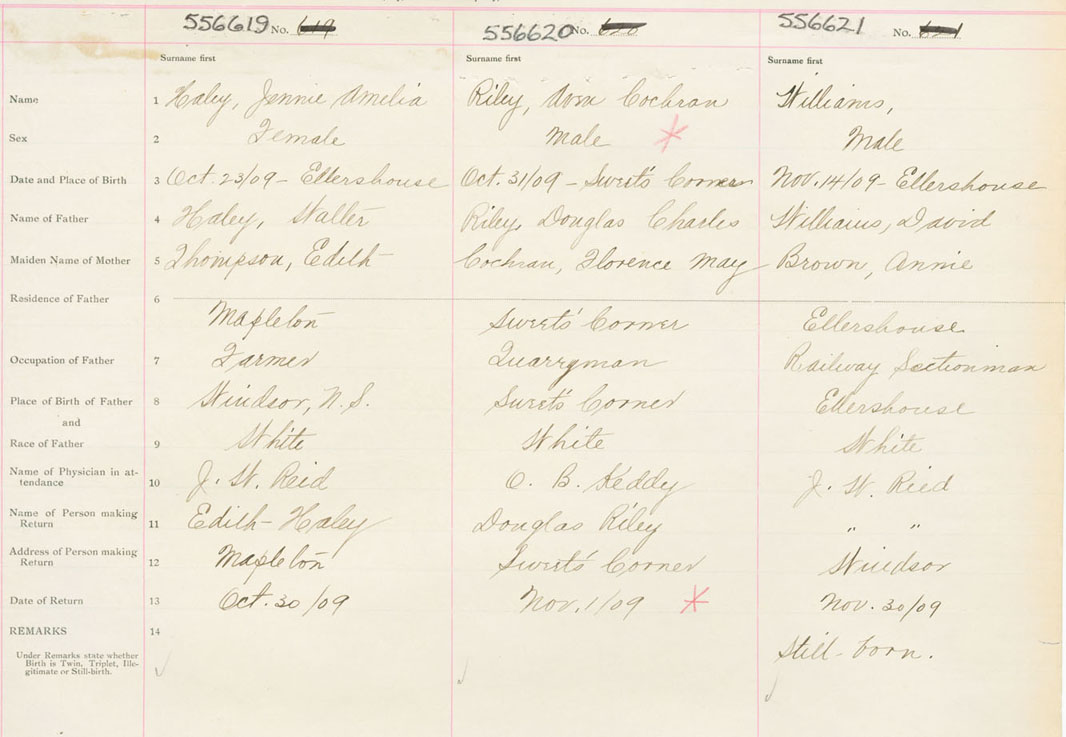 556619 No. 619 556620 No. 620 556621 No. 621
Surname first Surname first Surname first
Name 1 Haley, Jennie Amelia Riley, Avon Cochran Williams,
Sex 2 Female Male Male
Date and Place of Birth 3 Oct. 23/09 - Ellershouse Oct. 31/09 - Sweet's Corner Nov. 14/09 - Ellershouse
Name of Father 4 Haley, Walter Riley, Douglas Charles Williams, David
Maiden Name of Mother 5 Thompson, Edith Cochran, Florence May Brown, Annie
Residence of Father 6
Mapleton Sweets' Corner Ellershouse
Occupation of Father 7 Farmer Quarryman Railway Sectionman
Place of Birth of Father 8 Windsor, N.S. Sweet's Corner Ellershouse
and
Race of Father 9 White White White
Name of Physician in at-
tendance 10 J. W. Reid O. B. Keddy J. W. Ried
Name of Person making
Return 11 Edith Haley Douglas Riley " "
Address of Person making
Return 12 Mapleton Sweet's Corner Windsor
Date of Return 13 Oct. 30/09 Nov. 1/09 Nov. 30/09
REMARKS 14
Still-born.
Under Remarks state whether
Birth is Twin, Triplet, Ille-
gitimate or Still-birth.